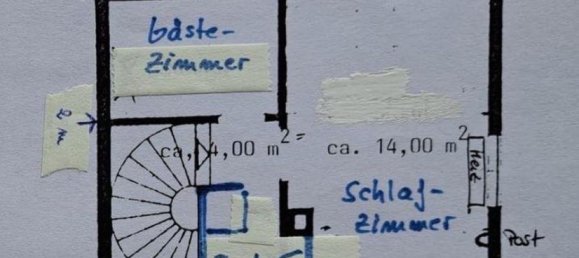 Gäste-
Zimmer
2 m
ca. 4,00 m² =
ca. 14,00 m²
Heiz
Schlaf-
Zimmer
Post